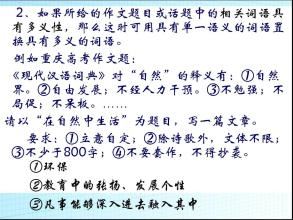 2、如果所给的作文题目或话题中的相关词语具
有多义性，那么这时可用具有单一语义的词语置
换具有多义的词语。
例如重庆高考作文题：
《现代汉语词典》对“自然”的释义有：①自然
界。②自由发展；不经人力干预。③不勉强；不
局促；不呆板。……
请以“在自然中生活”为题目，写一篇文章。
要求：①立意自定；②除诗歌外，文体不限；
③不少于800字；④不要套作，不得抄袭。
①环保
②教育中的张扬、发展个性
③凡事能够深入进去融入其中